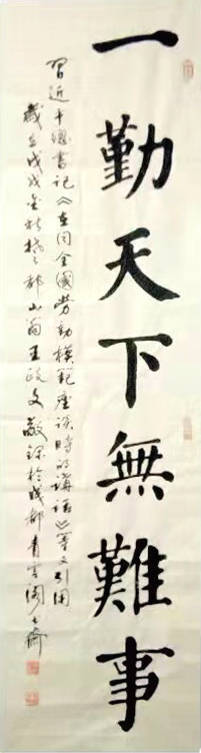 一勤天下無難事
習近平總書記《在同全國勞動模範座談時的講話》等文引用
歲在戊戌金秋於成都山翁王政文敬錄於成都青